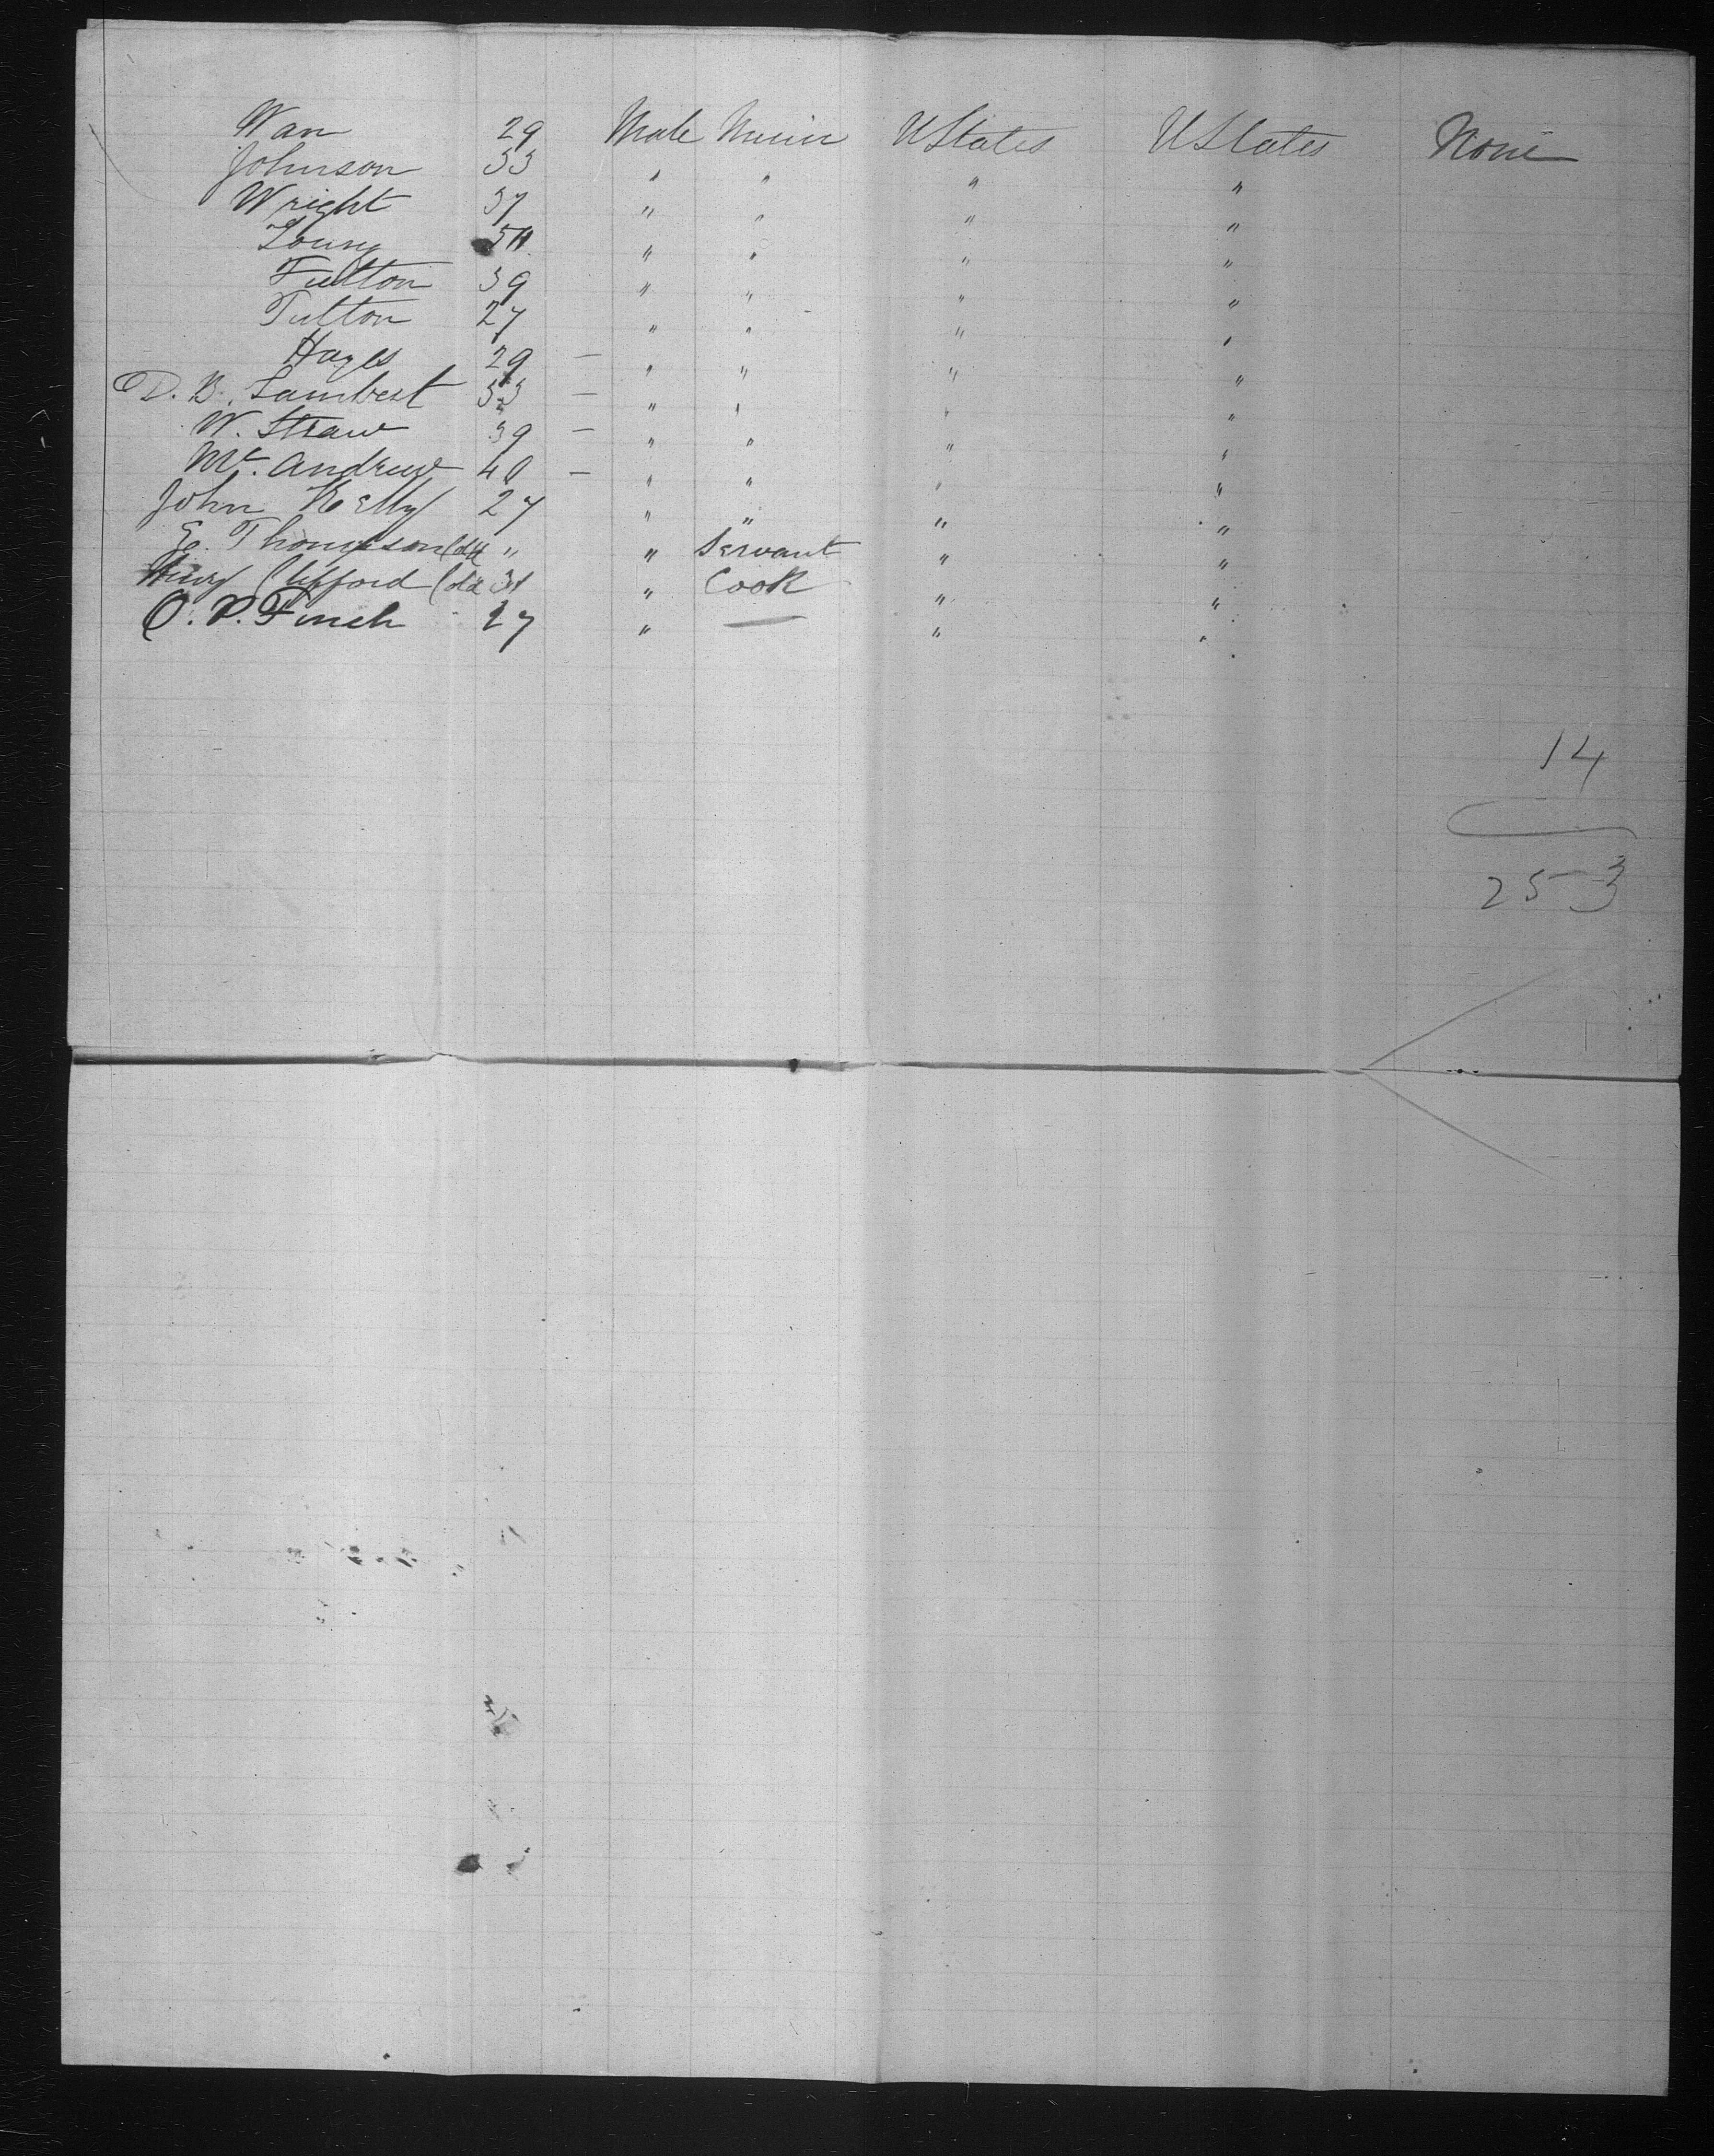 Wan 29 Male Miner UStates UStates None
Johnson 33 " " " "
Wright 37 " " " "
Young " " " "
Fulton 39 " " " "
Tutton 27 " " " "
Hayes 29 — " " " "
D. B. Lambert 33 — " " " "
W. Straw 39 — " " " "
Mc. Andrew 40 — " " " "
John Kelly 27 " " " "
E. Thompson (cld " " Servant " "
Clifford (cld 31 " Cook " "
O. P. Finch 27 " — " "
14
253